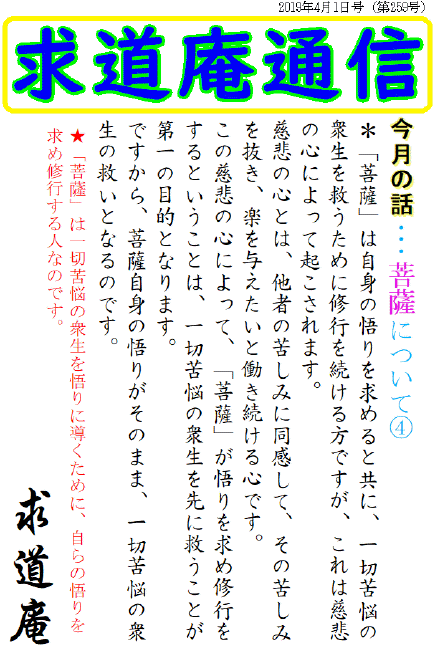 2019年4月1日号（第259号）
求道庵通信
今月の話…菩薩について④
＊「菩薩」は自身の悟りを求めると共に、一切苦悩の
衆生を救うために修行を続ける方ですが、これは慈悲
の心によって起こされます。
慈悲の心とは、他者の苦しみに同感して、その苦しみ
を抜き、楽を与えたいと働き続ける心です。
この慈悲の心によって、「菩薩」が悟りを求め修行を
するということは、一切苦悩の衆生を先に救うことが
第一の目的となります。
ですから、菩薩自身の悟りがそのまま、一切苦悩の衆
生の救いとなるのです。
★「菩薩」は一切苦悩の衆生を悟りに導くために、自らの悟りを
求め修行する人なのです。
求道庵